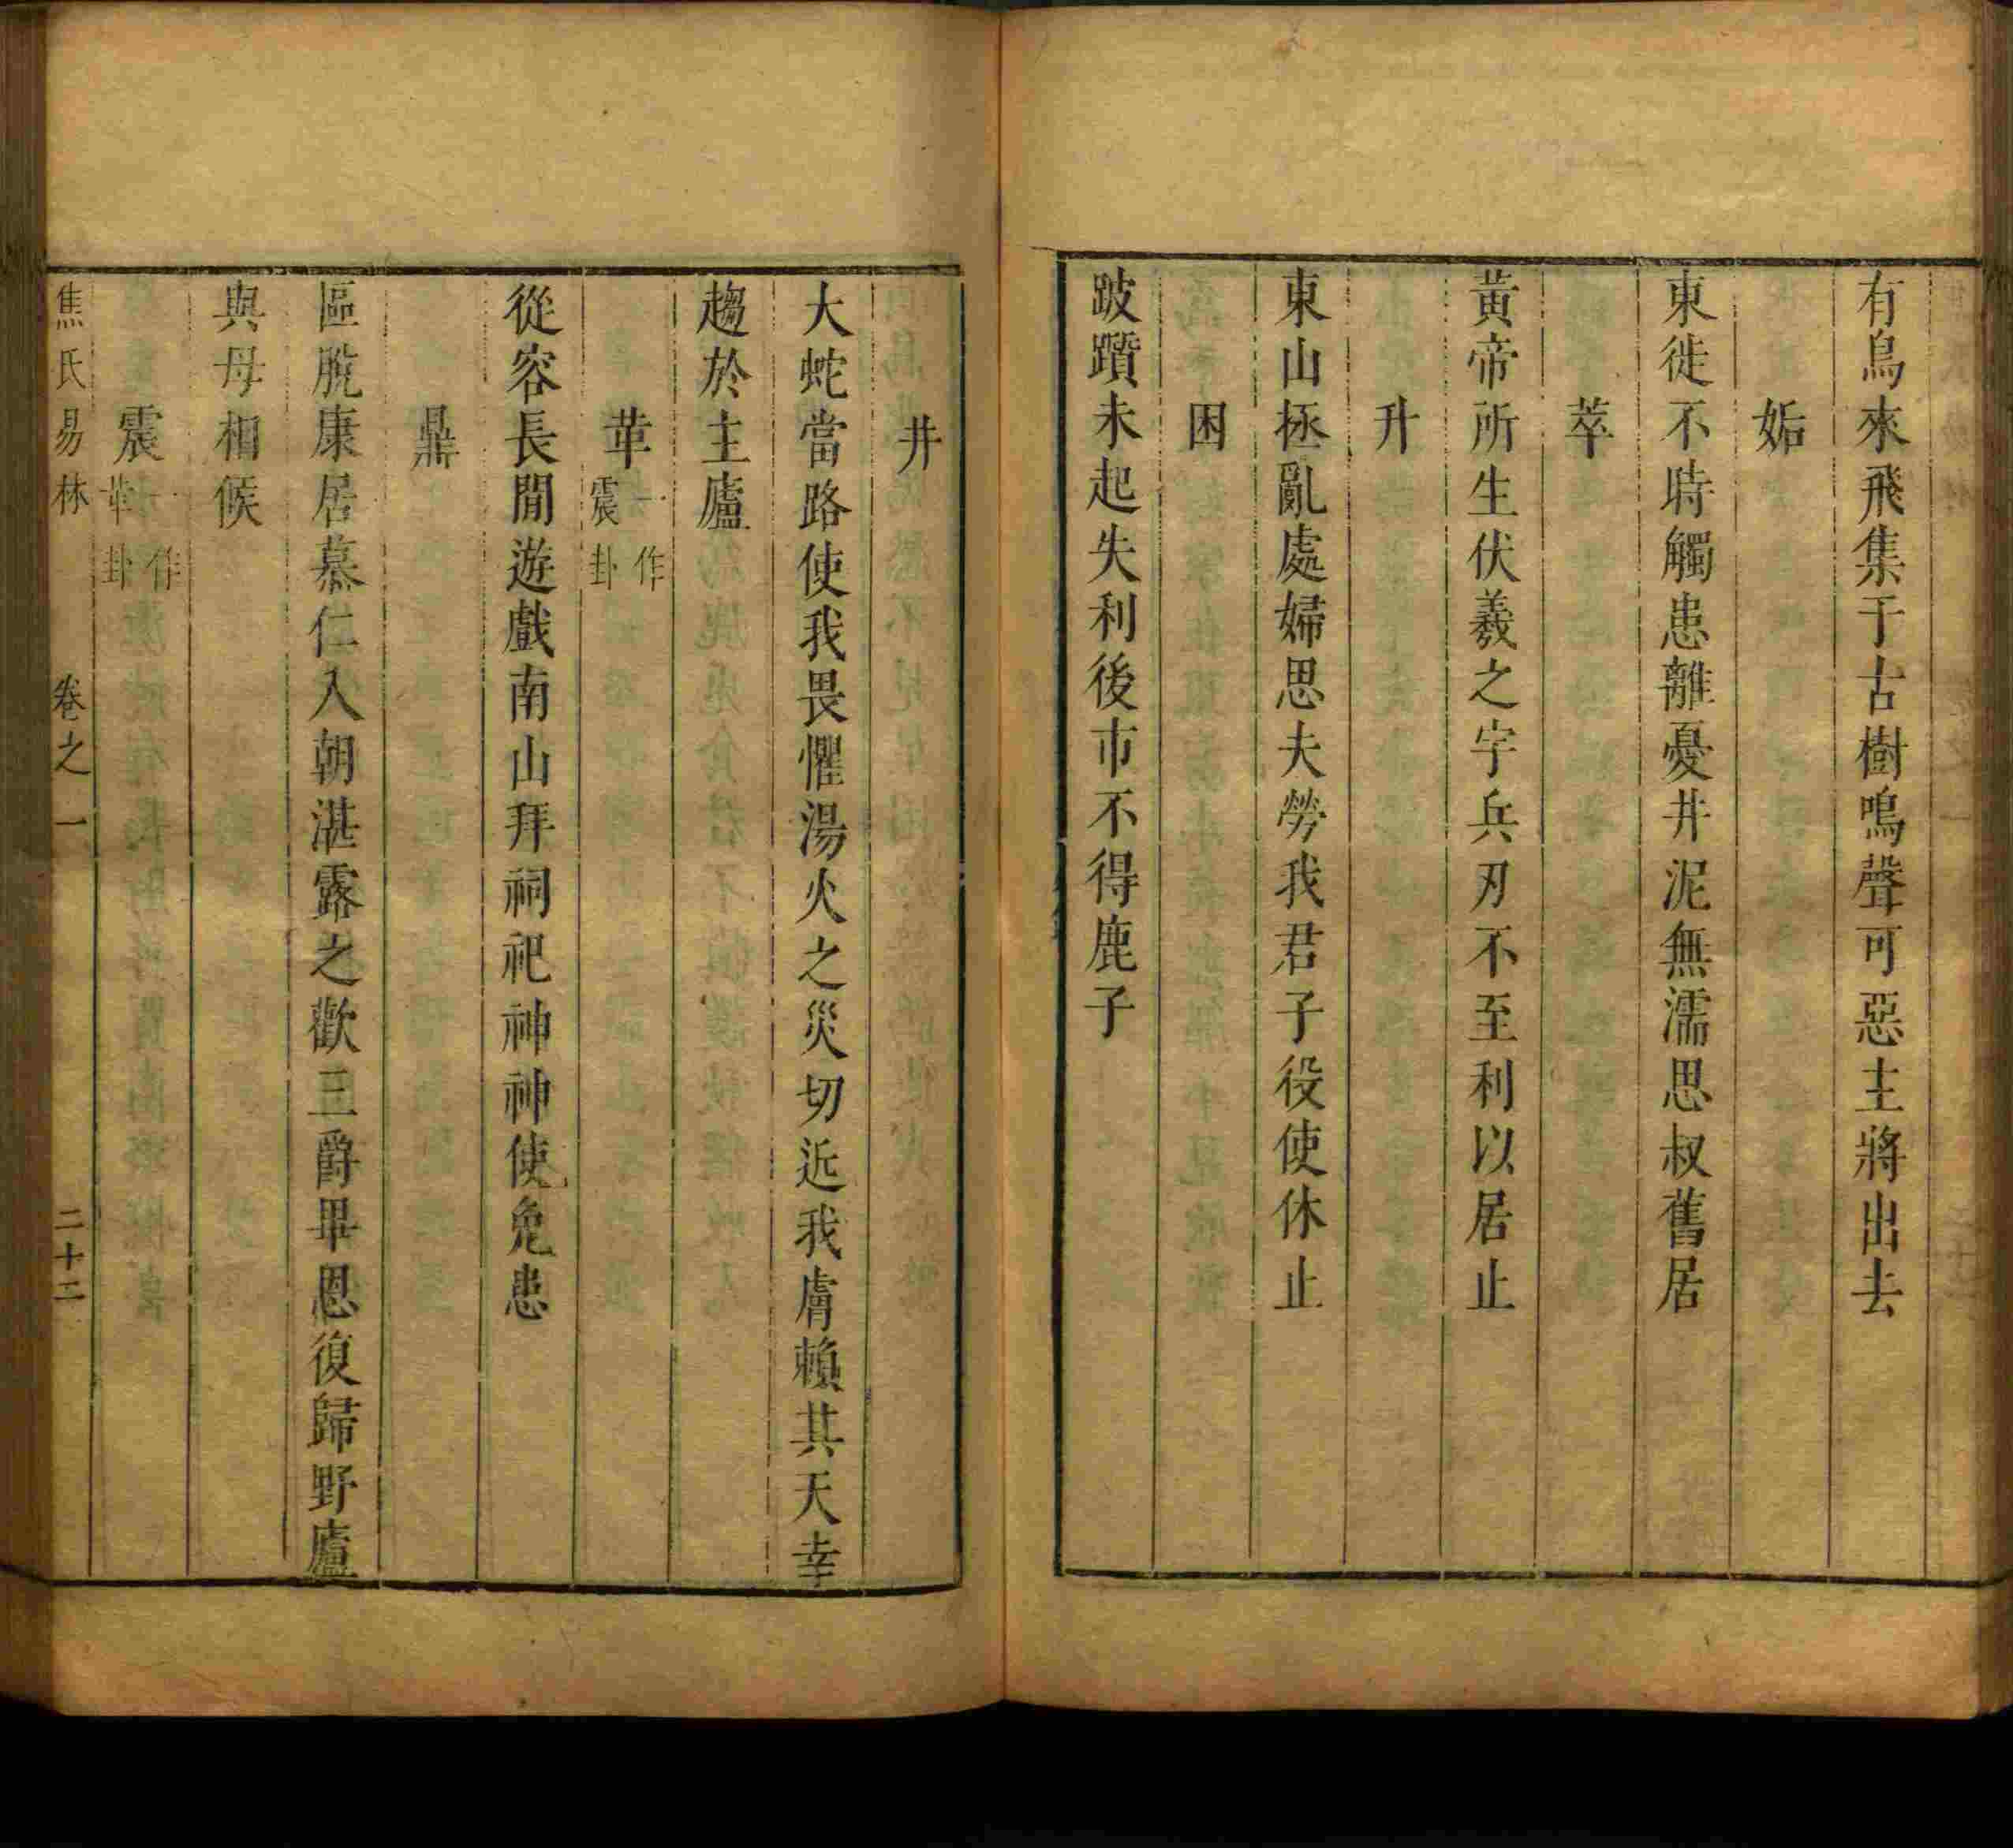 有鳥來飛集于古樹鳴聲可惡主將出去
姤
東徙不時觸患離憂井泥無濡思叔舊居
萃
黃帝所生伏羲之宇兵刃不至利以居止
升
東山拯亂處婦思夫勞我君子役使休止
困
跛躓未起失利後市不得鹿子
井
大蛇當路使我畏懼湯火之災切近我膚賴其天幸
趨於主廬
革一作震卦
從容長閒遊戲南山拜祠祀神神使免患
鼎
區脫康居慕仁入朝湛露之歡三爵畢恩復歸野廬
與母相候
震一作革卦
焦氏易林 卷之一 二十二